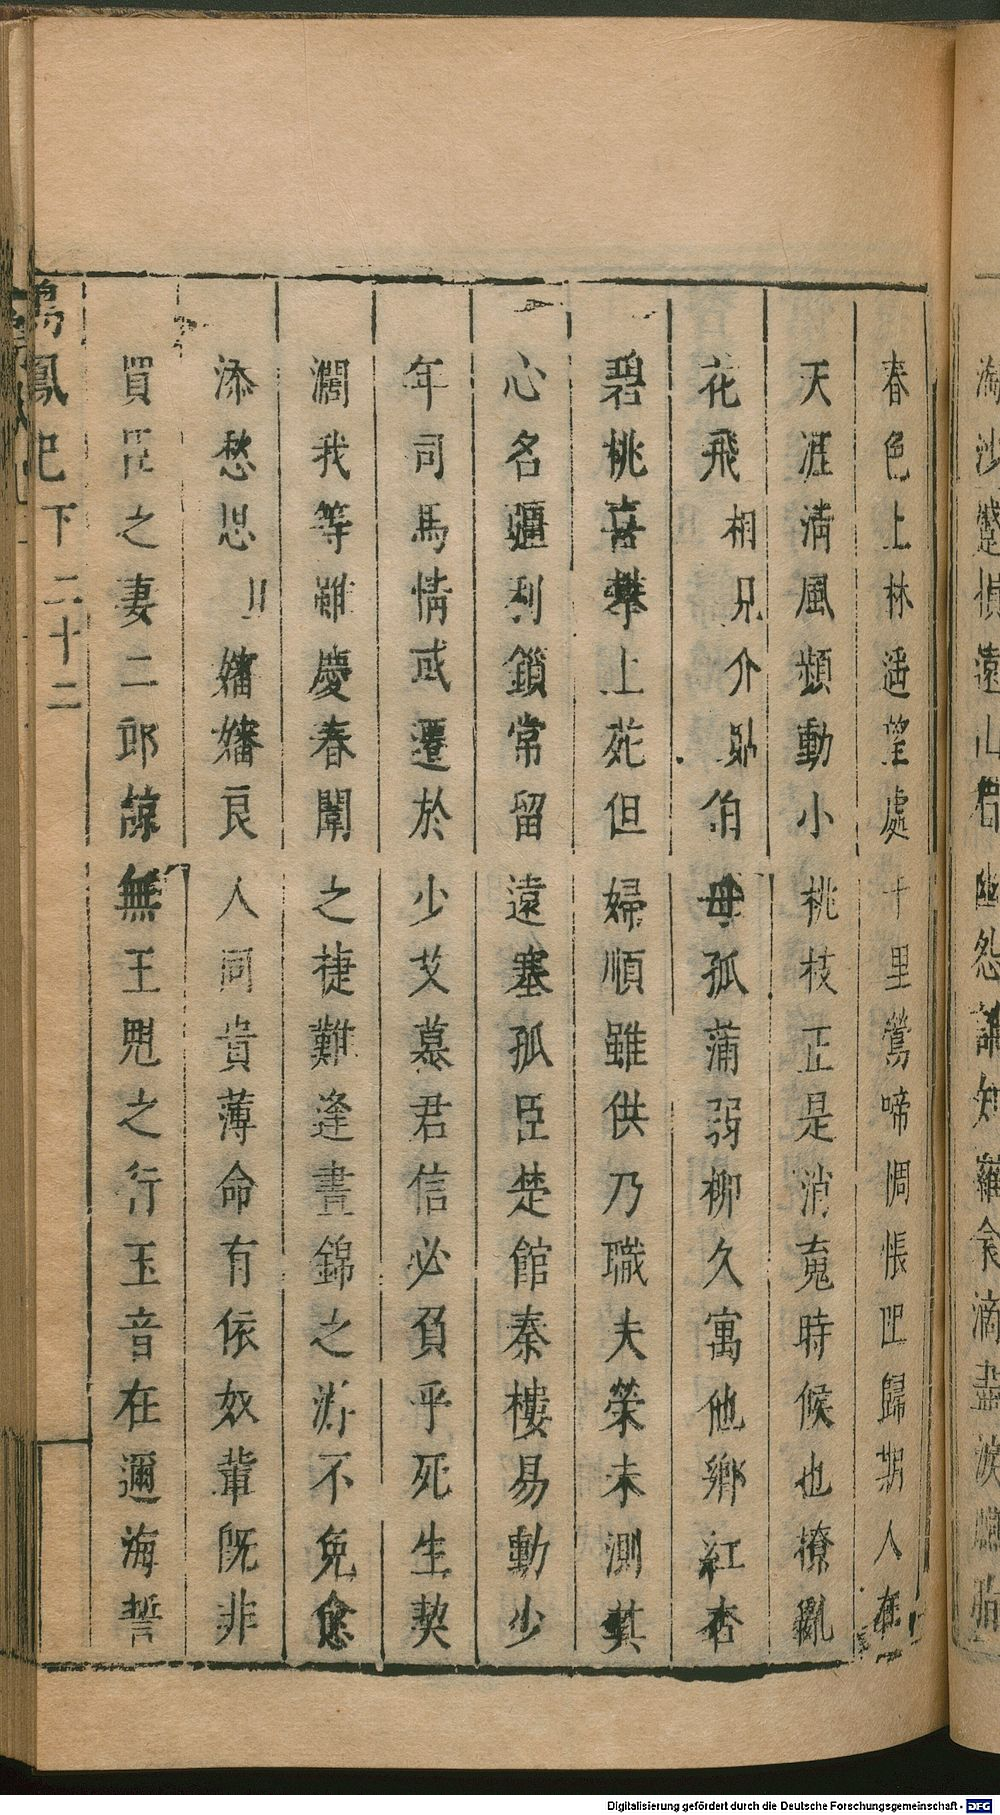 淘沙蹙損遠山君幽怨誰知羅衾滴盡淚臙脂
春色上林遥望處十里鶯啼惆悵㘴歸期人在
天涯清風頻動小桃枝正是消䰟時候也撩亂
花飛相見介貼伯母孤蒲弱柳久寓他鄉紅杏
碧桃喜攀上苑但婦順雖供乃職夫榮未測其
心名韁利鎖常留遠塞孤臣楚館秦樓易動少
年司馬情或遷於少艾慕君信必負乎死生契
濶我等雖慶春闈之捷難逢晝錦之游不免愈
添愁思 嬸嬸良人同貴薄命有依奴輩既非
買臣之妻二郎諒無王魁之行玉音在邇海誓
鳳記 下 二十二
Digitalisierung gefördert durch die Deutsche Forschungsgemeinschaft - DFG